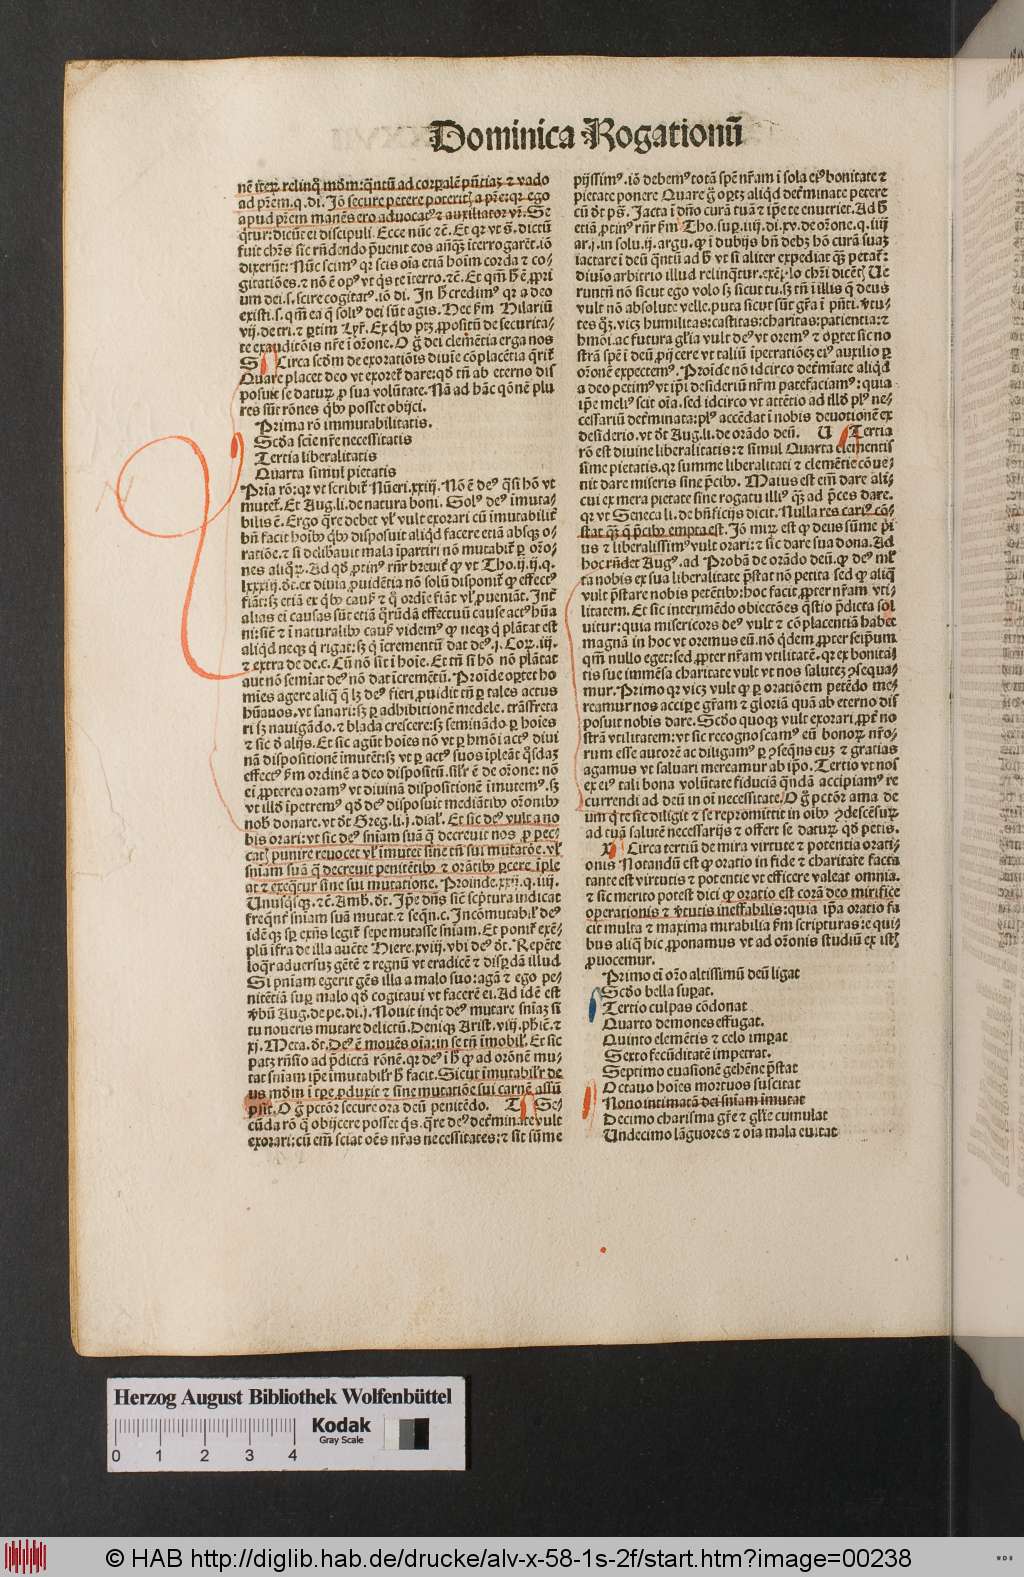 Dominica Rogationū
nē iteꝝ relinq̄ mōm: q̄ntū ad corꝑalē pn̄tiaꝫ ⁊ vado
ad pr̄em. q. di. Iō secure petere poterit᷒ a pr̄e: qꝛ ego
apud pr̄em manēs ero aduocat᷒ ⁊ auxiliator vr̄. Se
q̄tur: dicūt ei discipuli. Ecce nūc ⁊č. Et qꝛ vt s̄. dictū
fuit chr̄s sic rn̄dendo p̄uenit eos anq̄ꝫ īterrogarēt. iō
dixerūt: Nūc scim᷒ qꝛ scis oīa etiā hoīm corda ⁊ co-
gitatiōes. ⁊ nō ē op᷒ vt q̄s te īterro. ⁊č.
um dei. s. scire cogitat᷒. iō di. In h̄ credim᷒ qꝛ a deo
existi. s. qm̄ ea q̄ soli᷒ dei sūt agis. Hec ẜm Hilariū
te exauditōis nr̄e ī or̄one. O ḡ dei clemētia erga nos
S Circa scd̄m de exorationis diuīe cōplacētia q̄rit᷒
Quare placet deo vt exoret᷒ dare: qd̄ tn̄ ab eterno dis
posuit se daturꝝ ꝓ sua volūtate. Nā ad hāc qōnē plu
res sūt rōnes q̄bꝰ posset obijci.
Prima rō immutabilitatis.
Scd̄a scīe nr̄e necessitatis
Tertia liberalitatis
Quarta simul pietatis
Prīa rō: qꝛ vt scribit᷒ Nūeri. xxiij. Nō ē de᷒ q̄si hō vt
mutet᷒. Et Aug. li. de natura boni. Sol᷒ de᷒ īmuta-
bilis ē. Ergo q̄re debet vl᷒ vult exorari cū īmutabilit᷒
bn̄ facit hoībꝰ q̄bꝰ disposuit aliqd̄ facere etiā absqꝫ o-
ratiōe. ⁊ si delibauit mala īpartiri nō mutabit᷒ ꝑ or̄o-
nes aliq̄ꝝ. Ad qd̄ ꝓtin᷒ rn̄r breuit᷒ ꝙ vt Tho. ij. ij. q.
lxxxiij. dc̄. ex diuīa ꝓuidētia nō solū disponit᷒ ꝙ effect᷒
alias ei causas sūt etiā q̄rūdā effectuū cause act᷒ hūa
ni: sic̄ ⁊ ī naturalibꝰ causꝭ videm᷒ ꝙ neqꝫ q̄ plātat est
aliqd̄ neqꝫ q̄ rigat: sꝫ q̄ īcremētū dat de᷒. j. Coꝝ. iij.
aut nō semīat de᷒ nō dat īcremētū. Proīde oꝑtet ho
mies agere aliq̄ q̄ lꝫ de᷒ fieri ꝓuidit tn̄ ꝑ tales actus
hūanos. vt sanari: sꝫ ꝑ adhibitionē medele. trāsfreta
ri sꝫ nauigādo. ⁊ blada crescere: sꝫ seminādo ꝑ hoīes
⁊ sic d̄ alijs. Et sic agūt hoīes nō vt ꝑ hm̄oi act᷒ diui
nā dispositionē īmutēt: sꝫ vt ꝑ act᷒ suos īpleāt q̄sdaꝫ
effect᷒ ẜm ordinē a deo dispositū. sīlr ē de or̄one: nō
ei ꝓpterea oram᷒ vt diuinā dispositionē īmutem᷒. sꝫ
vt illd̄ īpetrem᷒ qd̄ de᷒ disposuit mediātibꝰ or̄onibꝰ
nob̄ donare. vt dc̄ Greg. li. j. dial. Et sic de᷒ vult a no
bis orari: vt sic de᷒ sniam suā q̄ decreuit nos ꝓ pec-
cat᷒ punire reuocet vl᷒ īmutet sine tn̄ sui mutatōe. vl᷒
sniam suā q̄ decreuit penitētibꝰ ⁊ orātibꝰ ꝑcere īple
at ⁊ exeq̄tur sine sui mutatione. Proinde. xxij. q. iiij.
Unusq̄sqꝫ. ⁊č. Amb. dc̄. Ip̄e dn̄s sic̄ scp̄tura indicat
freq̄nt᷒ sniam suā mutat. ⁊ seq̄n. c. Incōmutabil᷒ de᷒
idē qꝫ sꝑ exn̄s legit᷒ sepe mutasse sniam. Et ponit᷒ exē-
plū īfra de illa auc̄te Hiere. xviij. vbi de᷒ dc̄. Repēte
loq̄r aduersuꝫ gētē ⁊ regnū vt eradicē ⁊ disꝑdā illud
Si pniam egerit gēs illa a malo suo: agā ⁊ ego pe-
nitētiā suꝑ malo qd̄ cogitaui vt facerē ei. Ad idē est
tu noueris mutare delictū. Deniqꝫ Arist. viij. phi̅c. ⁊
xj. Meta. dc̄. De᷒ ē mouēs oīa: in se tn̄ īmobil᷒. Et sic
patꝫ rn̄sio ad p̄dictā rōnē. qꝛ de᷒ ī h̄ ꝙ ad orōnē mu-
tat sniam ip̄e īmutabilr h̄ facit. Sicut īmutabilr de
us mōm ī tꝑe ꝓduxit ⁊ sine mutatiōe sui carnē assū
psit. O ḡ pctōr secure ora deū penitēdo. T Se-
cūda rō q̄ obijcere posset q̄s. q̄re de᷒ determinate vult
exorari: cū em̄ sciat oēs nr̄as necessitates: ⁊ sit sūme
pijssim᷒. iō debem᷒ totā spē nr̄am ī sola ei᷒ bonitate ⁊
pietate ponere Quare ḡ oꝑtꝫ aliqd̄ det᷒minate petere
cū dc̄t ps̄. Jacta ī dn̄o curā tuā ⁊ ip̄e te enutriet. Ad h̄
etiā ꝓtin᷒ rn̄r ẜm Tho. suꝑ. iiij. di. xv. de or̄one. q. iiij
ar. j. in solu. ij. argu. ꝙ ī dubijs bn̄ debꝫ hō curā suaꝫ
iactare ī deū q̄ntū ad h̄ vt si aliter expediat q̄ꝫ petat᷒:
runtn̄ nō sicut ego volo sꝫ sicut tu. sꝫ tn̄ ī illis q̄ deus
vult nō absolute velle. puta sicut sūt gr̄a ī pn̄ti. v̄tu-
tes q̄ꝫ. vicꝫ humilitas: castitas: charitas: patientia: ⁊
hm̄oi. ac futura gl̄ia vult de᷒ vt orem᷒ ⁊ oꝑtet sic no
strā spē ī deū ꝓijcere vt taliū īpetratiōeꝫ ei᷒ auxilio ꝑ
or̄onē expectem᷒. Proīde nō idcirco det᷒mīate aliqd̄
a deo petim᷒ vt ip̄i desideriū nr̄m patefaciam᷒: quia
ip̄e meli᷒ scit oīa. sed idcirco vt attētio ad illd̄ pl᷒ ne-
cessariū determinata: pl᷒ accēdat ī nobis deuotionē ex
desiderio. vt dc̄t Aug. li. de orādo deū. U Tertia
rō est diuine liberalitatis: ⁊ simul Quarta clementis
sime pietatis. qꝛ summe liberalitati ⁊ clemētie cōue-
nit dare miseris sine p̄cibꝰ. Maius est em̄ dare ali-
cui ex mera pietate sine rogatu illi᷒ q̄ꝫ ad p̄ces dare.
qꝛ vt Seneca li. de bn̄ficijs dicit. Nulla res cari᷒ cō-
stat q̄ꝫ q̄ p̄cibꝰ empta est. Iō miꝝ est ꝙ deus sūme pi
us ⁊ liberalissim᷒ vult orari: ⁊ sic dare sua dona. Ad
hoc rn̄det Aug᷒. ad Probā de orādo deū. ꝙ de᷒ ml᷒
ta nobis ex sua liberalitate p̄stat nō petita sed ꝙ aliq̄
vult p̄stare nobis petētibꝰ: hoc facit ꝓpter nr̄am vti-
litatem. Et sic interimēdo obiectōes q̄stio p̄dicta sol
uitur: quia misericors de᷒ vult ⁊ cōplacentiā habet
magnā in hoc vt oremus eū. nō q̄dem ꝓpter seip̄um
qm̄ nullo eget: sed ꝓpter nr̄am vtilitatē. qꝛ ex bonita
tis sue immēsa charitate vult vt nos saluteꝫ ꝯsequa-
mur. Primo qꝛ vicꝫ vult ꝙ ꝑ oratiōem petēdo me-
reamur nos accipere gr̄am ⁊ gloriā quā ab eterno dis
posuit nobis dare. Scd̄o quoqꝫ vult exorari ꝓpt᷒ no
strā vtilitatem: vt sic recognoscam᷒ eū bonoꝝ nr̄o-
rum esse autorē ac diligam᷒ ꝑ ꝯseq̄ns euꝫ ⁊ gratias
agamus vt saluari mereamur ab ip̄o. Tertio vt nos
ex ei᷒ tali bona volūtate fiduciā q̄ndā accipiam᷒ re
currendi ad deū in oī necessitate. O ḡ pctōr ama de
um q̄ te sic diligit ⁊ se repromittit in oībꝰ ꝯdescēsuꝝ
ad tuā salutē necessarijs ⁊ offert se daturꝝ qd̄ petis.
X Circa tertiū de mira virtute ⁊ potentia orati-
onis Notandū est ꝙ oratio in fide ⁊ charitate facta
tante est virtutis ⁊ potentie vt efficere valeat omnia.
⁊ sic merito potest dici ꝙ oratio est corā deo mirifice
operationis ⁊ v̄tutis ineffabilis: quia ip̄a oratio fa
cit multa ⁊ maxima mirabilia ẜm scripturas: e qui-
bus aliq̄ hic ꝓponamus vt ad or̄onis studiū ex ist᷒
ꝓuocemur.
Primo eī or̄o altissimū deū ligat
Scd̄o bella suꝑat.
Tertio culpas cōdonat
Quarto demones effugat.
Quinto elemētis ⁊ celo imꝑat
Sexto fecūditatē impetrat.
Septimo euasionē gehēne p̄stat
Octauo hoīes mortuos suscitat
Nono intimatā dei sniam immutat
Decimo charisma gr̄e ⁊ gl̄ie cumulat
Undecimo lāguores ⁊ oīa mala euitat
Herzog August Bibliothek Wolfenbüttel
Kodak
Gray Scale
0 1 2 3 4
© HAB http://diglib.hab.de/drucke/alv-x-58-1s-2f/start.htm?image=00238